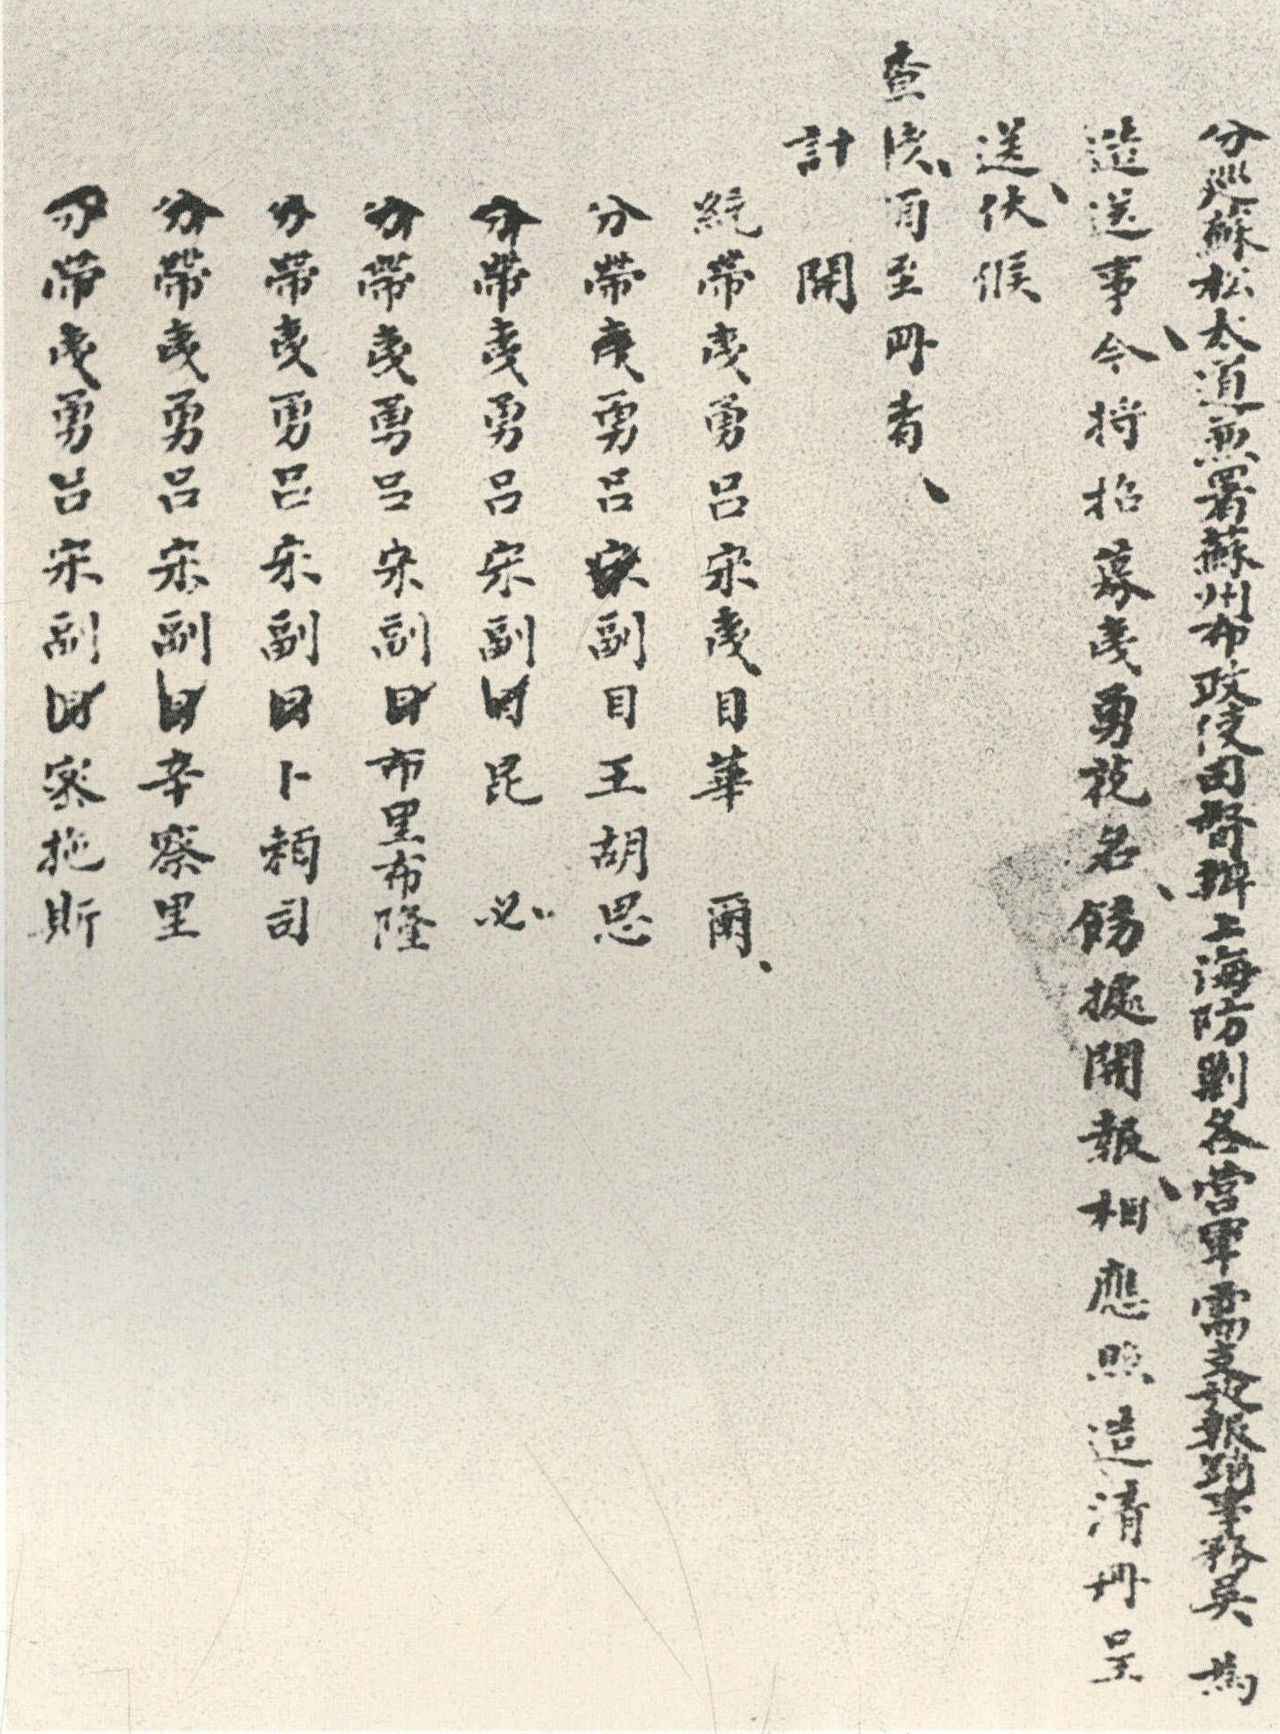 分巡蘇松太道兼署蘇州布政使司督辦上海防剿各營軍需支放報銷事務吳 為
造送事今將招募夷勇花名飭據開報相應照造清冊呈
送伏候
查核須至冊者
計開
統帶夷勇呂宋夷目華 爾
分帶夷勇呂宋副目王胡思
分帶夷勇呂宋副目昆 必
分帶夷勇呂宋副目布里布隆
分帶夷勇呂宋副目卜賴司
分帶夷勇呂宋副目辛察里
分帶夷勇呂宋副目宻拖斯